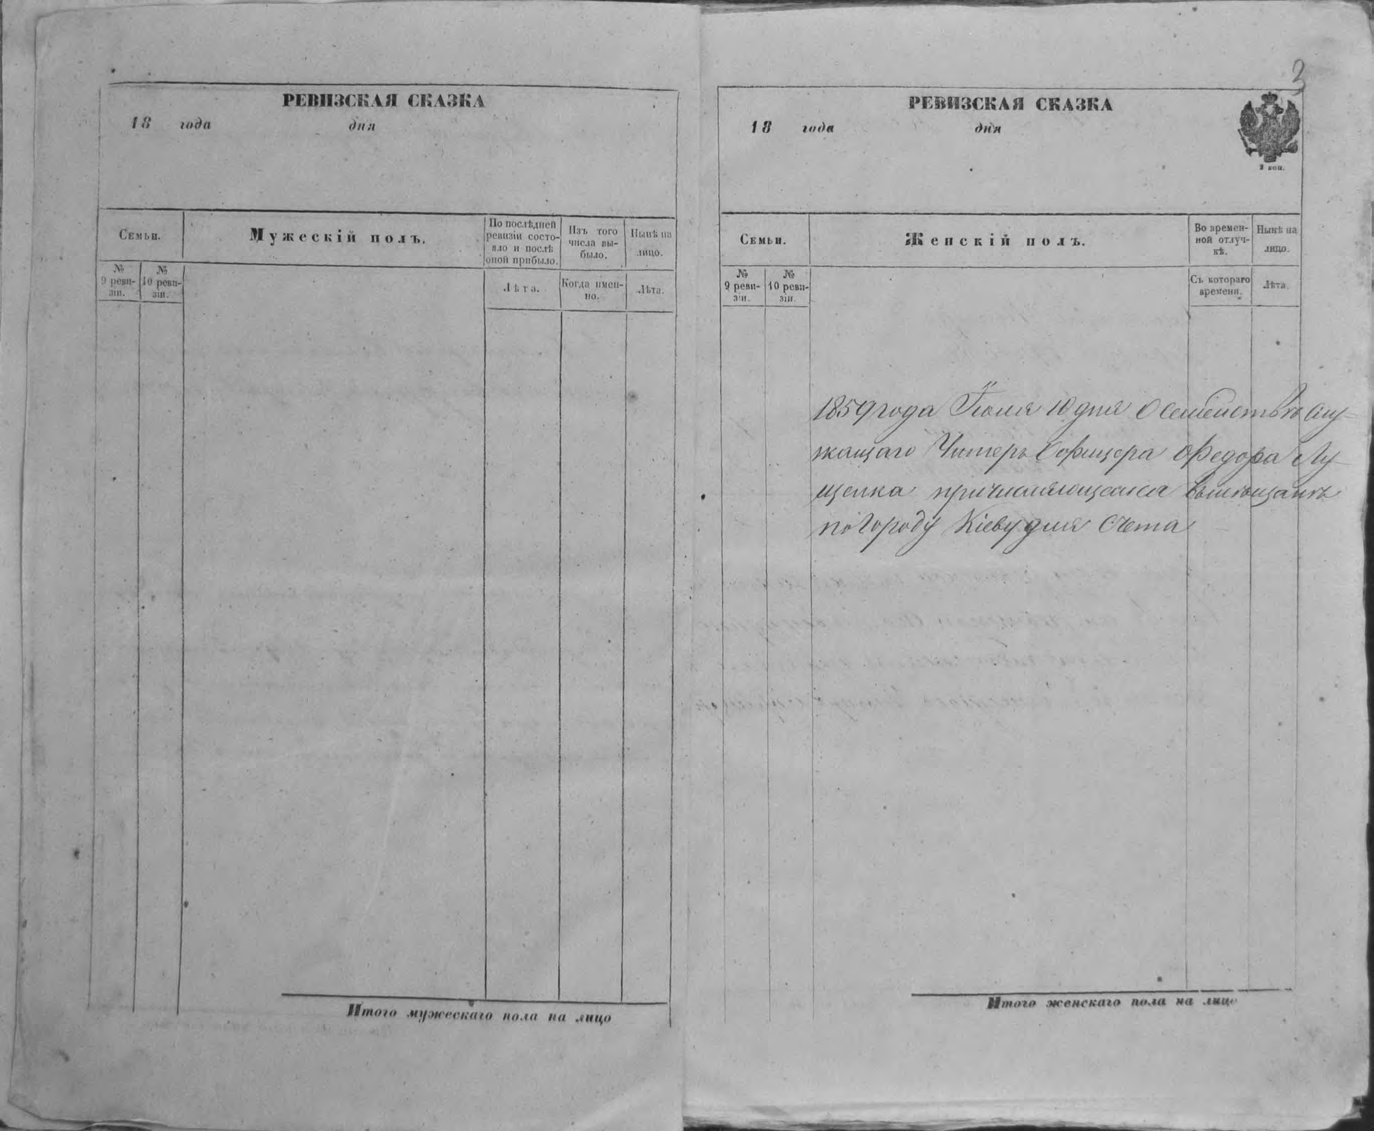 РЕВИЗСКАЯ СКАЗКА
18 года дня
Семьи.
Мужескій полъ.
По послѣдней
ревизіи состо-
яло и послѣ
оной прибыло.
Изъ того
числа вы-
было.
Нынѣ на
лицо.
№
9 реви-
зіи.
№
10 реви-
зіи.
Лѣта.
Когда имен-
но.
Лѣта.
Итого мужескаго пола на лицо
3
РЕВИЗСКАЯ СКАЗКА
18 года дня
коп.
Семьи.
Женскій полъ.
Во времен-
ной отлуч-
кѣ.
Нынѣ на
лицо.
№
9 реви-
зіи.
№
10 реви-
зіи.
Съ котораго
времени.
Лѣта.
1859 года Іюля 10 дня О семействѣ слу-
жащаго Унтеръ Офицера Федора Лу-
щенка причисляющагося въ мещане
по городу Кіеву для счета
Итого женскаго пола на лицо